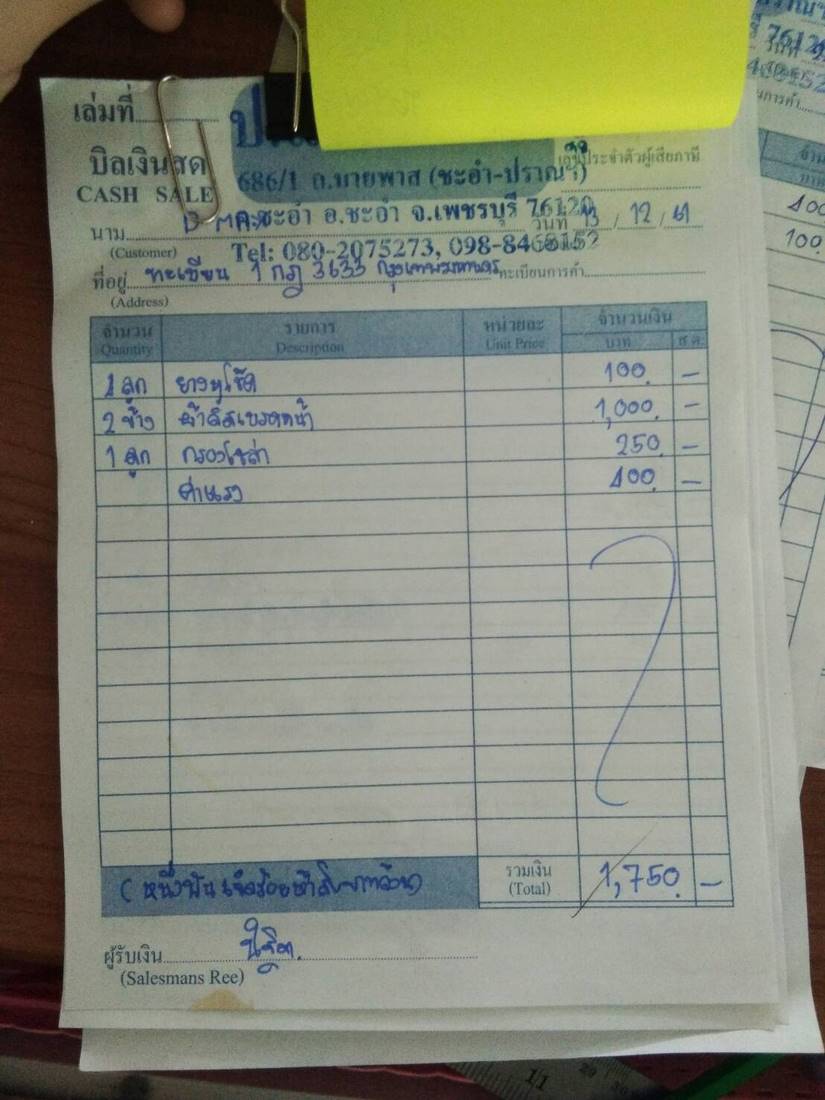 เล่มที่
บิลเงินสด
CASH SALE
686/1 ถ.บายพาส (ชะอำ-ปราณฯ)
เลขประจำตัวผู้เสียภาษี
ชะอำ อ.ชะอำ จ.เพชรบุรี 76120
นาม
(Customer)
D-MAX
วันที่ 13 / 12 / 61
Tel: 080-2075273, 098-8468152
ที่อยู่ ทะเบียน 1 กฎ 3633 กรุงเทพมหานคร ทะเบียนการค้า
(Address)
จำนวน รายการ หน่วยละ จำนวนเงิน
Quantity Description Unit Price บาท ส.ต.
1 ลูก ยางหูโช๊ค 100. –
2 ข้าง ผ้าดิสเบรคหน้า 1,000. –
1 ลูก กรองโซล่า 250. –
ค่าแรง 400. –
(หนึ่งพันเจ็ดร้อยห้าสิบบาทถ้วน) รวมเงิน 1,750. –
(Total)
ผู้รับเงิน
(Salesmans Ree)